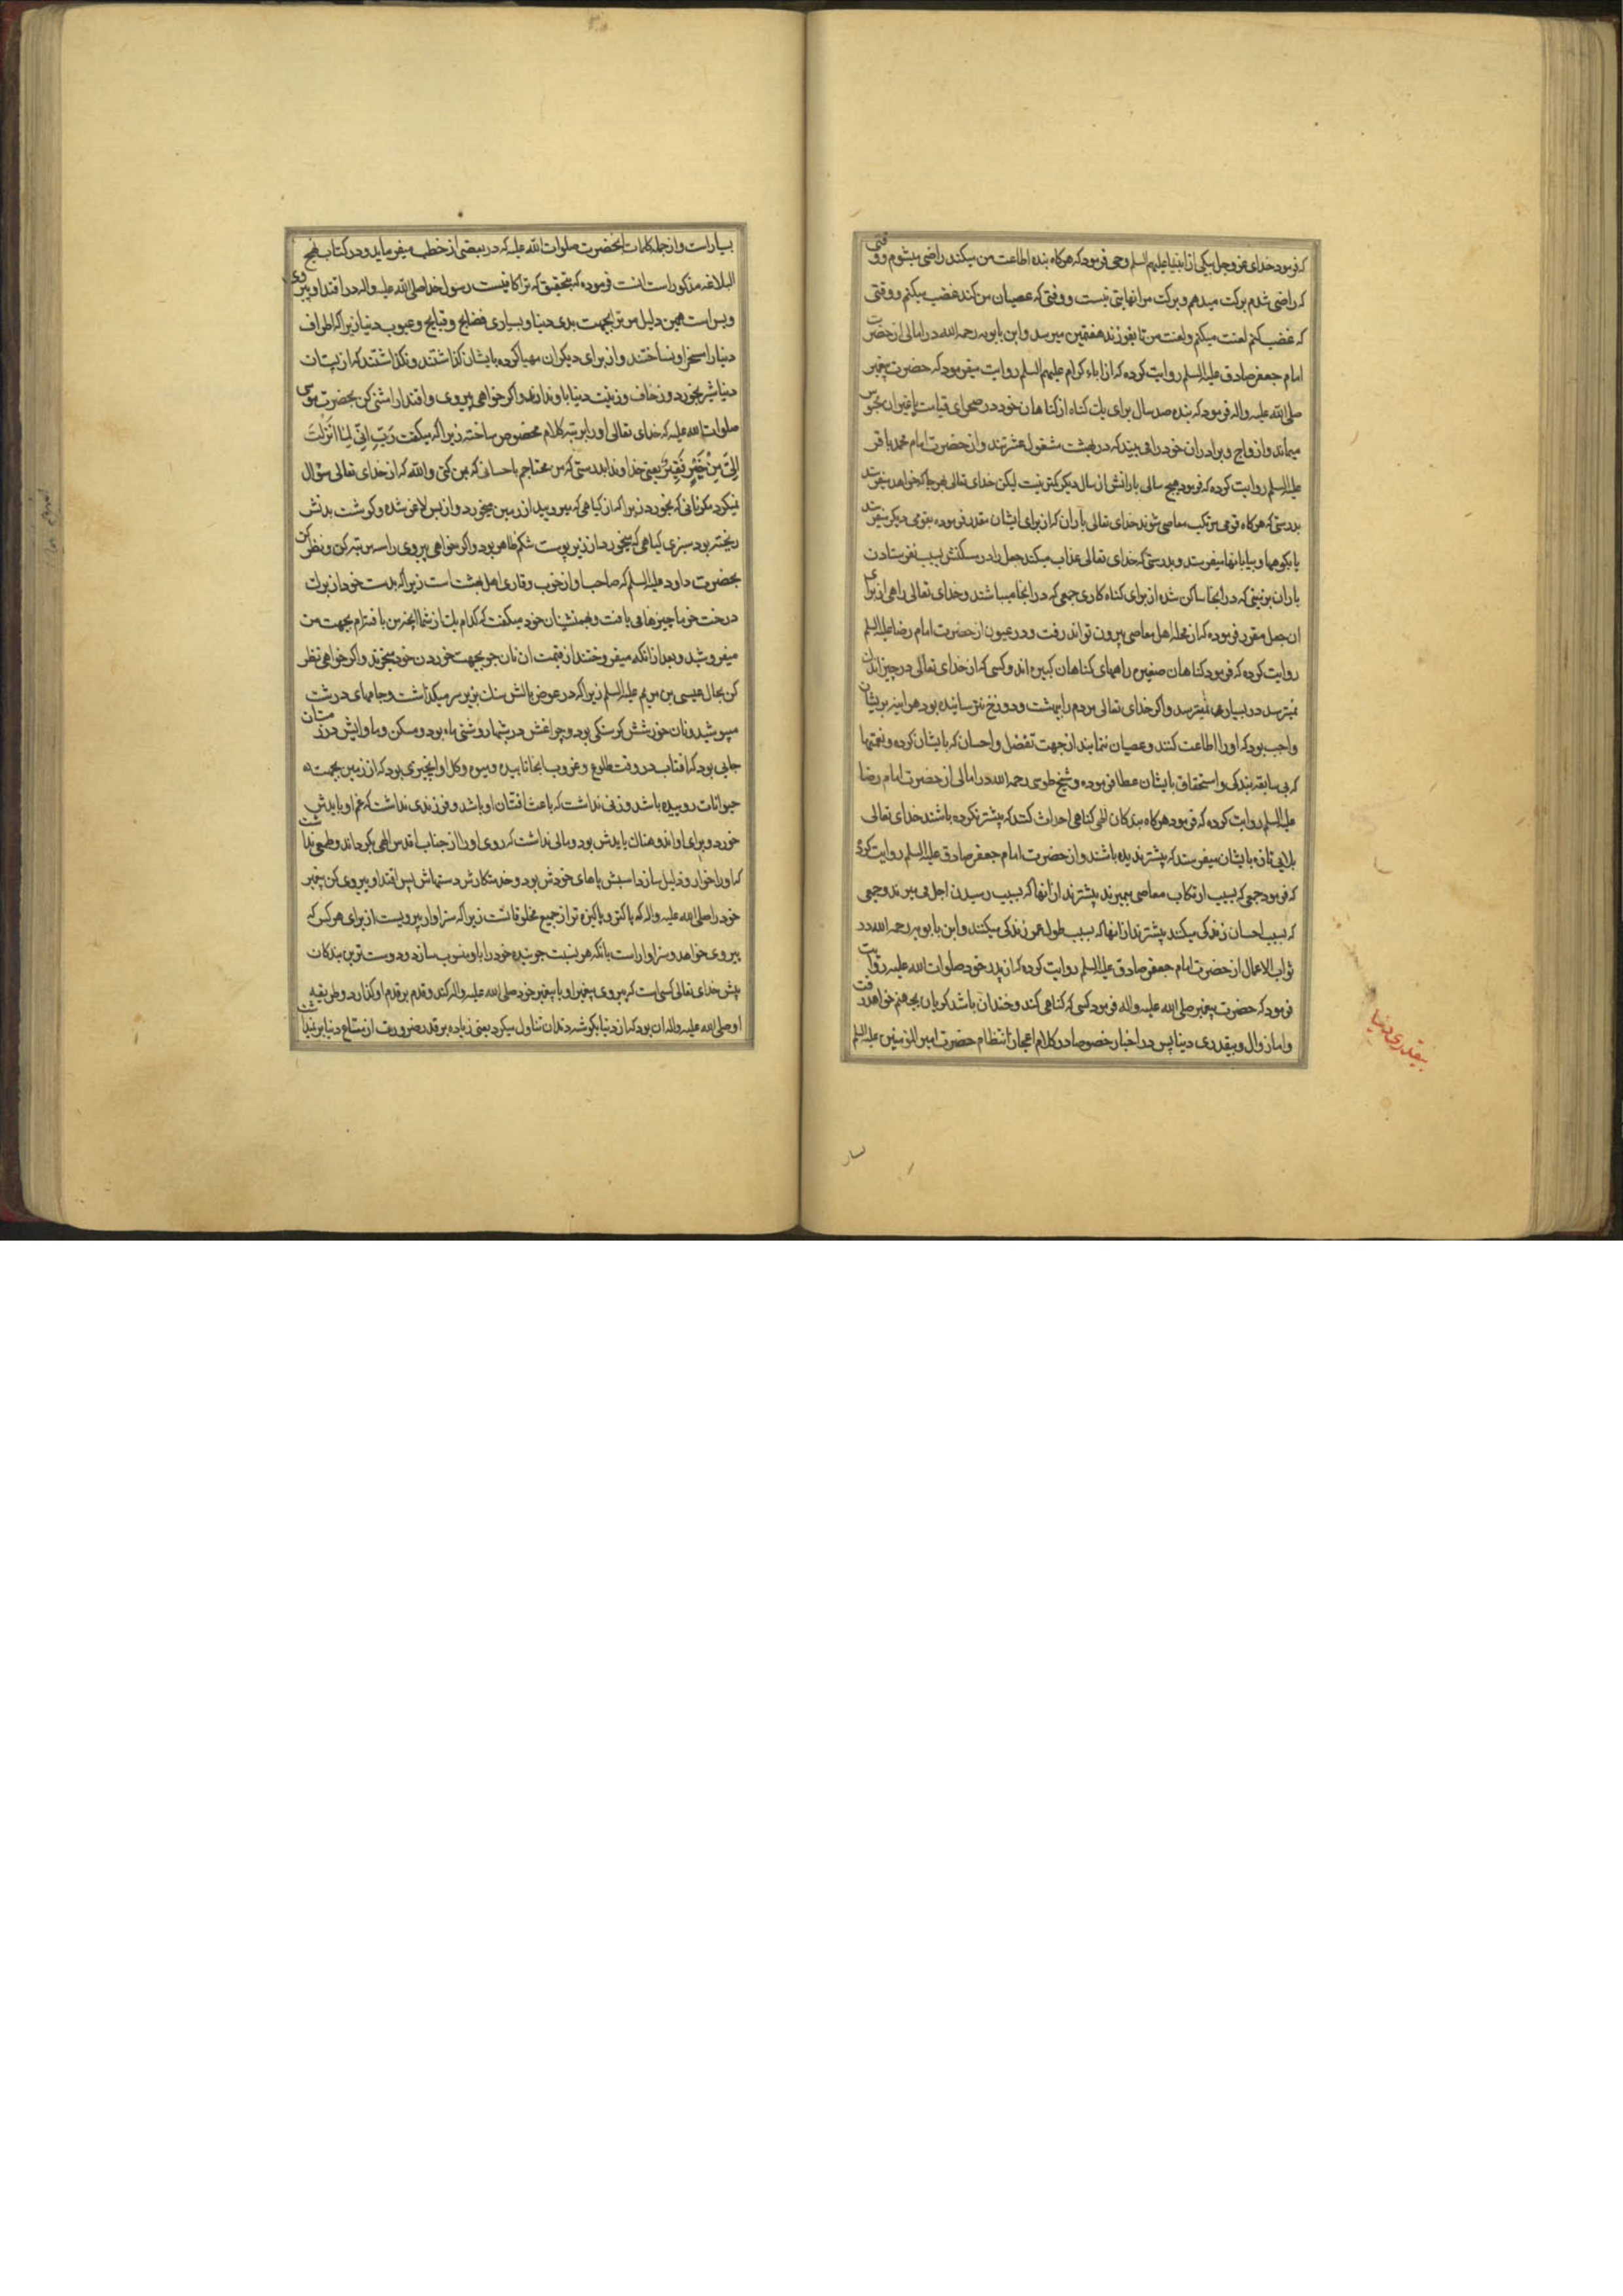 که فرمود خدای عزوجل بیکی از انبیا علیهم السلم وحی فرمود که هرکاه بنده اطاعت من میکند راضی میشوم ووقتی
که راضی شدم برکت میدهم وبرکت مرا نهایتی نیست ووقتی که عصیان من کند غضب میکنم ووقتی
که غضب کنم لعنت میکنم ولعنت من تا بفرزند هفتمین میرسد وابن بابویه رحمه الله در امالی از حضرت
امام جعفر صادق علیه السلم روایت کرده که از اباء کرام علیهم السلم روایت میفرمود که حضرت پیغمبر
صلی الله علیه واله فرمود که بنده صد سال برای یک کناه از کناهان خود در صحرای قیامت محبوس
میماند وازواج وبرادران خود را می بیند که در بهشت مشغول عشرتند واز حضرت امام محمد باقر
علیه السلم روایت کرده که فرمود هیچ سالی بارانش از سال دیکر کمتر نیست لیکن خدای تعالی هرجا که خواهد میفرستد
بدرستی که هرکاه قومی مرتکب معاصی شوند خدای تعالی بآران که از برای ایشان مقدر فرموده بقومی دیکر میفرستد
یا بکوهها وبیابانها میفرستد وبدرستی که خدای تعالی عذاب میکند جعل را در مسکنش بسبب نفرستادن
باران بزمینی که در انجا ساکن شده از برای کناه کاری جمعی که در انجا میباشند وخدای تعالی راهی از برای
ان جعل مقرر فرموده که از محله اهل معاصی بیرون تواند رفت ودر عیون از حضرت امام رضا علیه السلم
روایت کرده که فرمود کناهان صغیره راههای کناهان کبیره اند وکسی که از خدای تعالی در چیز اندک
نمیترسد در بسیار هم نمیترسد واکر خدای تعالی مردم را ببهشت ودوزخ نترسانیده بود هراینه بریشان
واجب بود که اورا اطاعت کنند وعصیان ننمایند از جهت تفضل واحسان که بایشان کرده ونعمتها
که بی سابقه بندکی واستحقاق بایشان عطا فرموده وشیخ طوسی رحمه الله در امالی از حضرت امام رضا
علیه السلم روایت کرده که فرمود هرکاه بندکان الهی کناهی احداث کنند که پیشتر نکرده باشند خدای تعالی
بلایی تازه بایشان میفرستد که پیشتر ندیده باشند واز حضرت امام جعفر صادق علیه السلم روایت کرده
که فرمود جمعی که بسبب ارتکاب معاصی بمیرند بیشترند از انها که بسبب رسیدن اجل می میرند وجمعی
که بسبب احسان زندکی میکنند بیشترند از انها که بسبب طول عمر زندکی میکنند وابن بابویه رحمه الله در
ثواب الاعمال از حضرت امام جعفر صادق علیه السلم روایت کرده که از پدر خود صلوات الله علیه روایت
فرمود که حضرت پیغمبر صلی الله علیه واله فرمود کسی که کناهی کند وخندان باشد کریان بجهنم خواهد رفت
واما زوال وبیقدری دنیا پس در اخبار خصوصا در کلام اعجاز انتظام حضرت امیر المؤمنین علیه السلم
بیقدری دنیا
بسیار
بسیار است واز جمله کلمات انحضرت صلوات الله علیه که در بعضی از خطب میفرماید ودر کتاب نهج
البلاغه مذکور است انست فرموده که بتحقیق که ترا کافیست رسول خدا صلی الله علیه واله در اقتدا وپیروی
وبس است همین دلیل مر ترا بجهت بدی دنیا وبسیاری فضایح وقبایح وعیوب دنیا زیرا که اطراف
دنیا را مسخر او نساختند واز برای دیکران مهیا کرده بایشان کذاشتند ونکذاشتند که از پستان
دنیا شیر بخورد وزخارف وزینت دنیا با او ندادند واکر خواهی پیروی واقتدا را مثنی کن بحضرت موسی
صلوات الله علیه که خدای تعالی اورا بمرتبه کلام مخصوص ساخته زیرا که میکفت رَبِّ اِنّی لِمٰا اَنْزَلْتَ
اِلَیَّ مِنْ خَیْرٍ فَقِیْرٌ یعنی خداوندا بدرستی که من محتاجم باحسانی که بمن کنی والله که از خدای تعالی سؤال
نمیکرد مکر نانی که بخورد زیرا که از کیاهی که میرویید از زمین میخورد واز بس لاغر شده وکوشت بدنش
ریخته بود سبزی کیاهی که میخورد از زیر پوست شکم ظاهر بود واکر خواهی پیروی را سه مرتبه کن ونظر کن
بحضرت داود علیه السلم که صاحب اواز خوب وقاری اهل بهشت است زیرا که بدست خود از برک
درخت خرما چیزها می بافت وبهمنشینان خود میکفت که کدام یک از شما اینچه من بافته‌ام بجهت من
میفروشید وبعد از انکه میفروختند از قیمت ان نان جو بجهت خوردن خود میخرید واکر خواهی نظر
کن بحال عیسی بن مریم علیه السلم زیرا که در عوض بالش سنک بزیر سر میکذاشت وجامهای درشت
میپوشید ونان خورشش کرسنکی بود وچراغش در شبها روشنی ماه بود ومسکن وماوایش در زمستان
جایی بود که افتاب در وقت طلوع وغروب بانجا تابیده ومیوه وکل او انچیزی بود که از زمین بجهت
حیوانات روییده باشد وزنی نداشت که باعث افتتان او باشد وفرزندی نداشت که غم او بایدش
خورد وبرای او اندوهناک بایدش بود ومالی نداشت که روی اورا از جناب اقدس الهی بکرداند وطمعی نداشت
که اورا خوار وذلیل سازد اسبش پاهای خودش بود وخدمتکارش دستهاش پس اقتدا وپیروی کن پیغمبر
خود را صلی الله علیه واله که پاکتر وپاکیزه تر از جمیع مخلوقاتست زیرا که سزاوار پیرویست از برای هرکس که
پیروی خواهد وسزاوار است بانکه هر نسبت جوینده خود را باو منسوب سازد ودوست ترین بندکان
پیش خدای تعالی کسی است که پیروی پیغمبر او یا پیغمبر خود صلی الله علیه واله کند وقدم بر قدم او کذارد وطریقه
او صلی الله علیه واله ان بود که از دنیا بکوشه دندان تناول میکرد یعنی زیاده بر قدر ضرورت از متاع دنیا بر نمیداشت